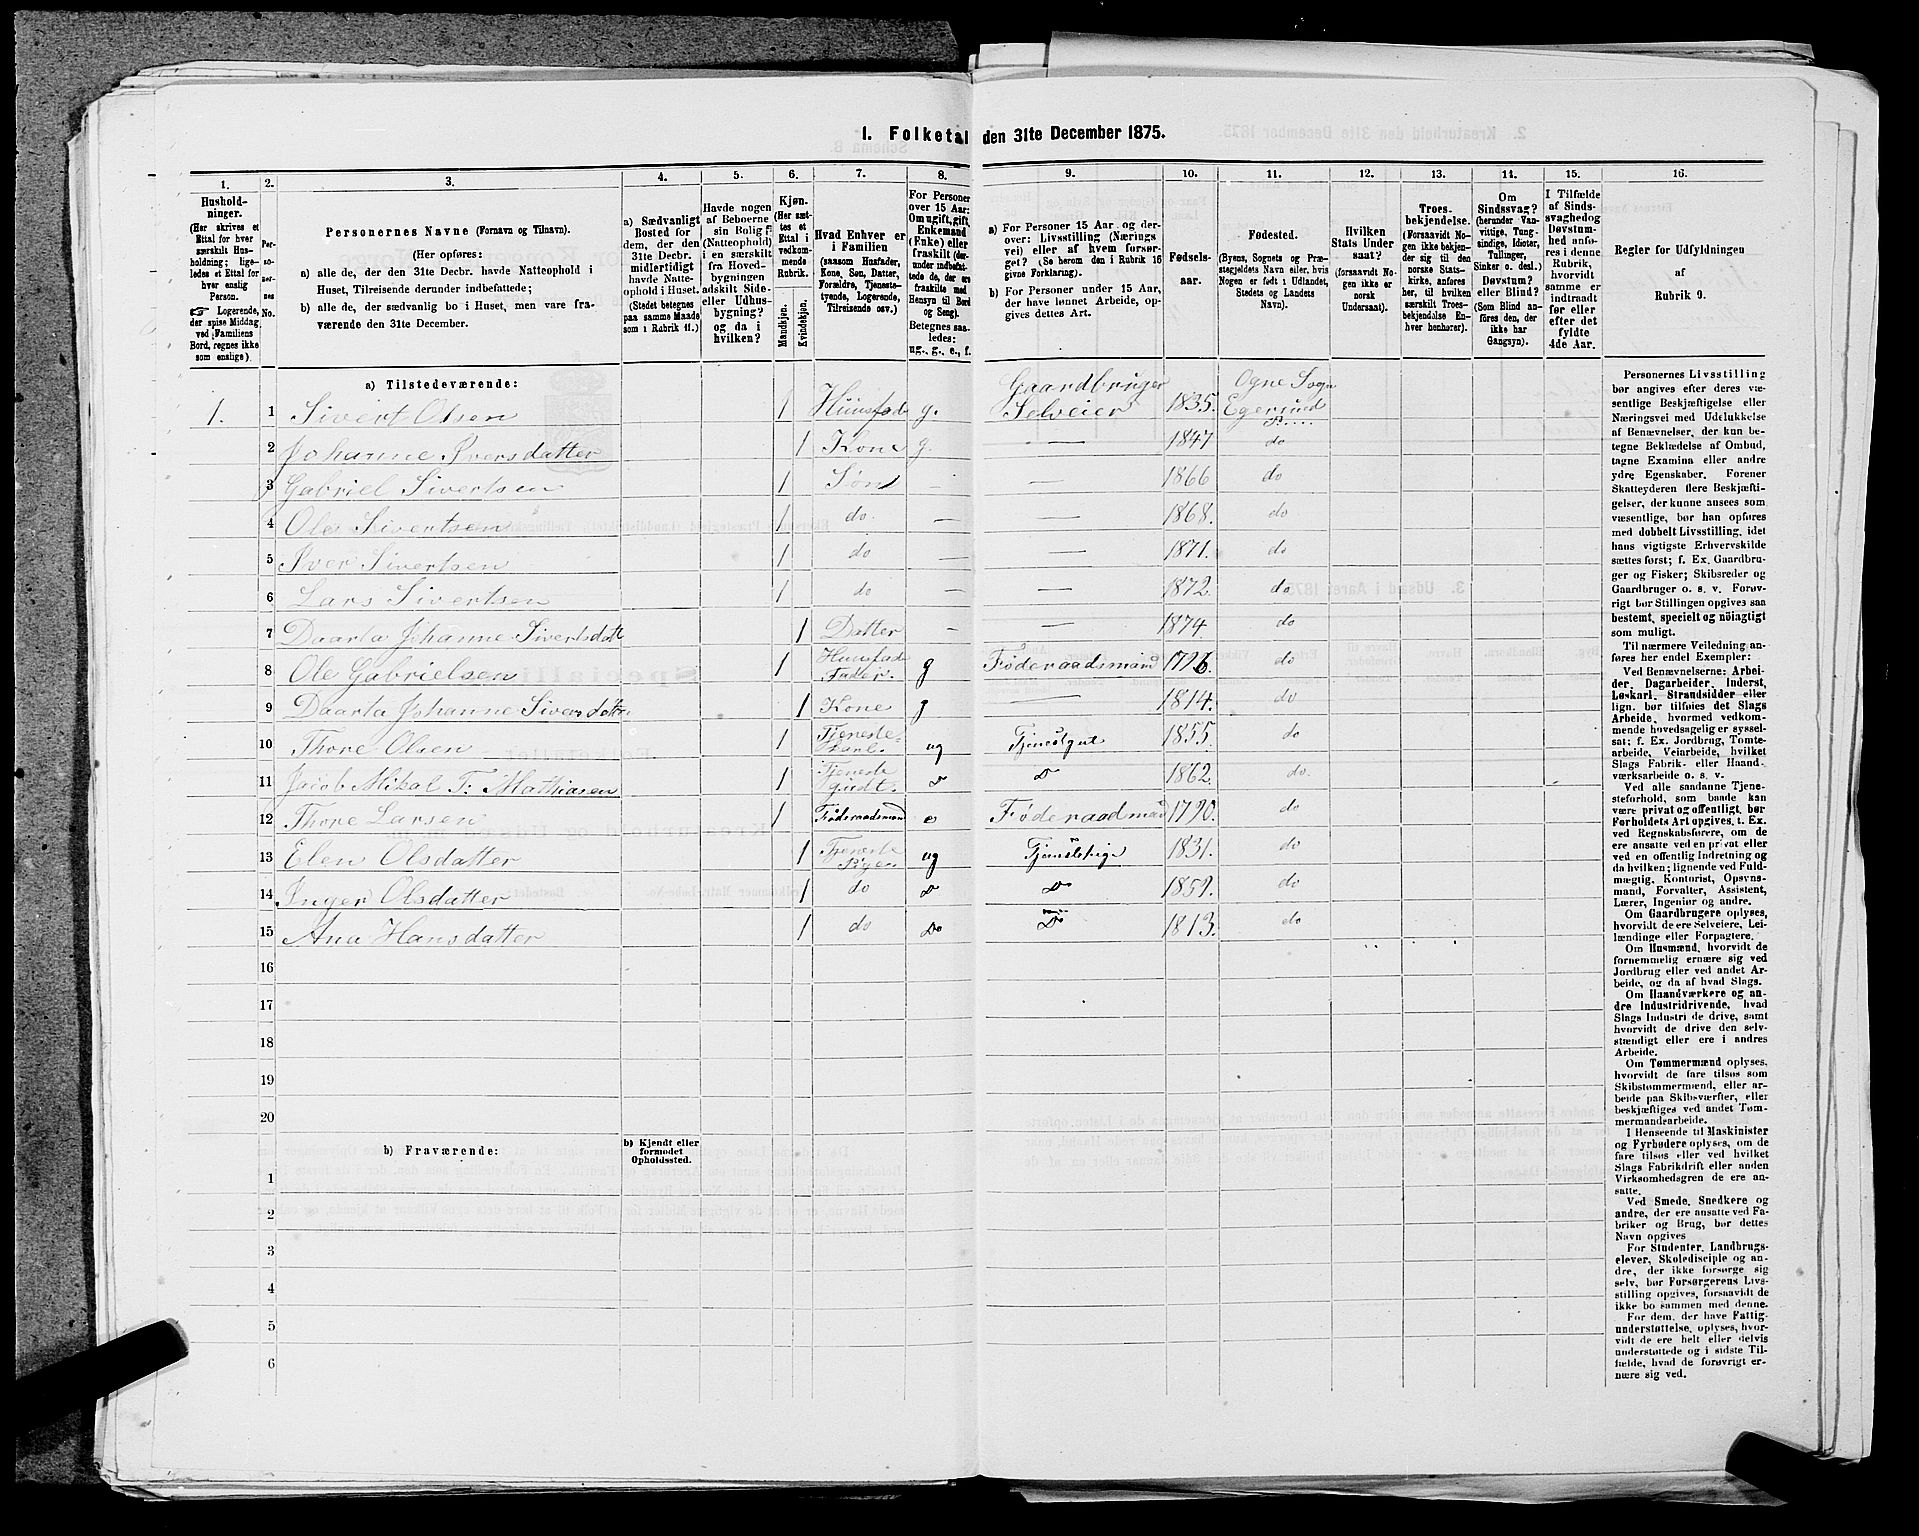 I. Folketal den 31te December 1875.
1. 2. 3. 4. 5. 6. 7. 8. 9. 10. 11. 12. 13. 14. 15. 16.
Hushold-
ninger.
(Her skrives et
Ettal for hver
særskilt Hus-
holdning; lige-
ledes et Ettal for
hver enslig
Person.
☞ Logerende,
der spise Middag
ved Familiens
Bord, regnes ikke
som enslige).
Per-
so-
ner-
nes
No.
Personernes Navne (Fornavn og Tilnavn).
(Her opføres:
a) alle de, der den 31te Decbr. havde Natteophold i
Huset, Tilreisende derunder indbefattede;
b) alle de, der sædvanlig bo i Huset, men vare fra-
værende den 31te December.
a) Sædvanligt
Bosted for
dem, der den
31te Decbr.
midlertidigt
havde Natte-
ophold i Huset.
(Stedet betegnes
paa samme Maade
som i Rubrik 11.)
Havde nogen
af Beboerne
sin Bolig
(Natteophold)
i en særskilt
fra Hoved-
bygningen
adskilt Side-
eller Udhus-
bygning?
og da i
hvilken?
Kjøn.
(Her sæt-
tes et
Ettal i
vedkom-
mende
Rubrik.
Mandkjøn.
Kvindekjøn.
Hvad Enhver er
i Familien
(saasom Husfader,
Kone, Søn, Datter,
Forældre, Tjeneste-
tyende, Logerende,
Tilreisende osv.)
For Personer
over 15 Aar:
Om ugift, gift,
Enkemand
(Enke) eller
fraskilt (der-
under indbefat-
tede de, der ere
fraskilte med
Hensyn til Bord
og Seng).
Betegnes saa-
ledes:
ug., g., e., f.
a) For Personer 15 Aar og der-
over: Livsstilling (Nærings
vei) eller af hvem forsør-
get? (Se herom den i Rubrik 16
givne Forklaring).
b) For Personer under 15 Aar,
der have lønnet Arbeide, op-
gives dettes Art.
Fødsels-
aar.
Fødested.
(Byens, Sognets og Præ-
stegjeldets Navn eller, hvis
Nogen er født i Udlandet,
Stedets og Landets
Navn).
Hvilken
Stats Under
saat?
(forsaavidt No-
gen ikke er
norsk
Undersaat).
Troes-
bekjendelse.
(Forsaavidt No-
gen ikke bekjen-
der sig til den
norske Stats-
kirke, anføres
her, til hvilken
særskilt Troes-
bekjendelse En-
hver henhører).
Om
Sindssvag?
(herunder Van-
vittige, Tung-
sindige, Idioter,
Tullinger,
Sinker o. desl.)
Døvstum?
eller Blind?
(Som Blind an-
føres den, der
ikke har
Gangsyn).
I Tilfælde
af Sinds-
svaghed og
Døvstum-
hed anfø-
res i denne
Rubrik,
hvorvidt
samme er
indtraadt
før eller
efter det
fyldte
4de Aar.
Regler for Udfyldningen
af
Rubrik 9.
a) Tilstedeværende:
1. 1 Sivert Olsen 1 Huusfad g. Gaardbruger Selveier 1835. Ogne Sogn Egersund P....
2 Johanne Iversdatter 1 Kone g. — 1847 do
3 Gabriel Sivertsen 1 Søn — — 1866 do
4 Ole Sivertsen 1 do. — — 1868. do
5 Iver Sivertsen 1 do — — 1871. do
6 Lars Sivertsen 1 do — — 1872. do
7 Daarta Johanne Sivertsdatt 1 Datter — — 1874 do
8 Ole Gabrielsen 1 Huusfad Fader. g Føderaadsmand 1796. do
9 Daarta Johanne Siversdatter 1 Kone g — 1814. do
10 Thore Olsen 1 Tjeneste- karl. ug Tjenestgut 1855. do
11 Jacob Mikal T: Mathiasen 1 Tjeneste Gudt. D D 1862. do.
12 Thore Larsen 1 Føderaadsmand e Føderaadsmand 1790. do
13 Elen Olsdatter 1 Tjeneste Pige ug Tjenstepige 1831. do
14 Inger Olsdatter 1 do D D 1859. do
15 Ana Hansdatter 1 do Do Do 1813. do
16
17
18
19
20
b) Fraværende:
b) Kjendt eller
formodet
Opholdssted.
1
2
3
4
5
6
Personernes Livsstilling
bør angives efter deres væ-
sentlige Beskjæftigelse eller
Næringsvei med Udelukkelse
af Benævnelser, der kun be-
tegne Beklædelse af Ombud,
tagne Examina eller andre
ydre Egenskaber. Forener
Skatteyderen flere Beskjæfti-
gelser, der kunne ansees som
væsentlige, bør han opføres
med dobbelt Livsstilling, idet
hans vigtigste Erhvervskilde
sættes først; f. Ex. Gaardbru-
ger og Fisker; Skibsreder og
Gaardbruger o. s. v. Forøv-
rigt bør Stillingen opgives saa
bestemt, specielt og nøiagtigt
som muligt.
Til nærmere Veiledning an-
føres her endel Exempler:
Ved Benævnelserne: Arbei-
der, Dagarbeider, Inderst,
Løskarl, Strandsidder eller
lign. bør tilføies det Slags
Arbeide, hvormed vedkom-
mende hovedsagelig er syssel-
sat; f. Ex. Jordbrug, Tomte-
arbeide, Veiarbeide, hvilket
Slags Fabrik- eller Haand-
værksarbeide o. s. v.
Ved alle saadanne Tje-
nesteforhold, som baade kan
være privat og offentligt, bør
Forholdets Art opgives, t. Ex.
ved Regnskabsførere, om de
ere ansatte ved en privat eller
ved en offentlig Indretning og
da hvilken; lignende ved Fuld-
mægtig, Kontorist, Opsyns-
mand, Forvalter, Assistent,
Lærer, Ingeniør og andre.
Om Gaardbrugere oplyses,
hvorvidt de ere Selveiere, Lei-
lændinge eller Forpagtere.
Om Husmænd, hvorvidt de
fornemmelig ernære sig ved
Jordbrug eller ved andet Ar-
beide, og da af hvad Slags.
Om Haandværkere og an-
dre Industridrivende, hvad
Slags Industri de drive, samt
hvorvidt de drive den selv-
stændigt eller ere i andres
Arbeide.
Om Tømmermænd oplyses,
hvorvidt de fare tilsøs som
Skibstømmermænd, eller ar-
beide paa Skibsværfter, eller
beskjæftiges ved andet Tøm-
mermandarbeide.
I Henseende til Maskinister
og Fyrbødere oplyses, om de
fare tilsøs eller ved hvilket
Slags Fabrikdrift eller anden
Virksomhedsgren de ere an-
satte.
Ved Smede, Snedkere og
andre, der ere ansatte ved Fa-
briker og Brug, bør dettes
Navn opgives
For Studenter, Landbrugs-
elever, Skoledisciple og an-
dre, der ikke forsørge sig
selv, bør Forsørgerens Livs-
stilling opgives, forsaavidt de
ikke bo sammen med denne.
For dem, der have Fattig-
understøttelse, oplyses, hvor-
vidt de ere helt eller delvis
understøttede og i sidste Til-
fælde, hvad de forøvrigt er-
nære sig ved.